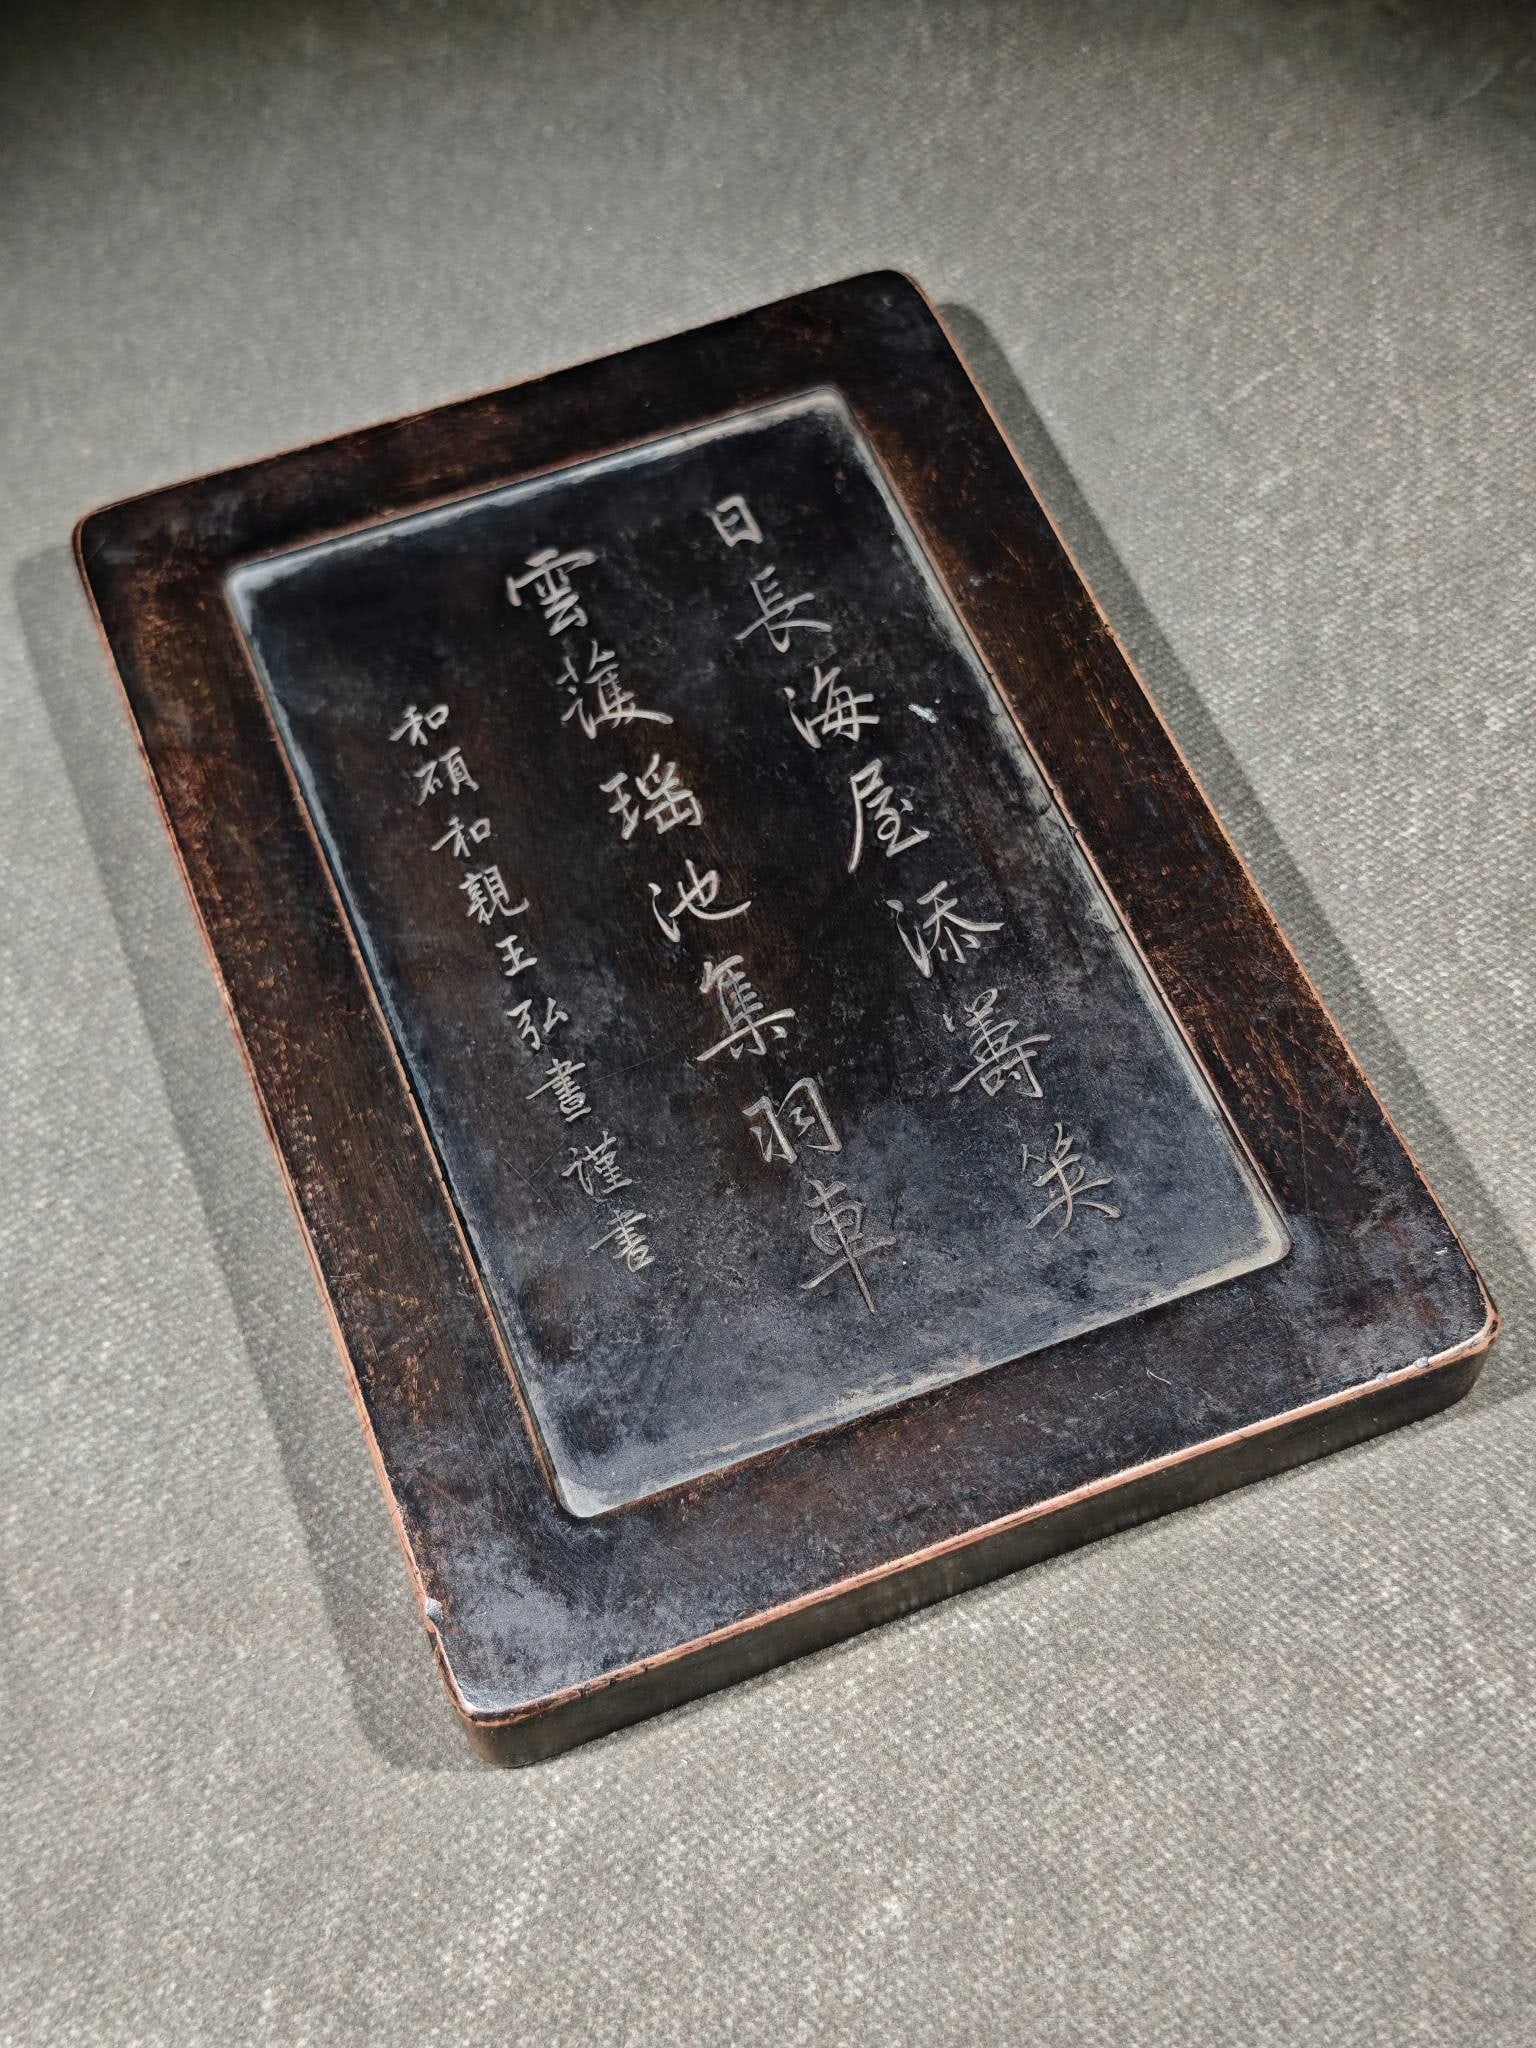 日長海屋添籌筴
雲護瑶池集羽車
和碩和親王弘晝謹書